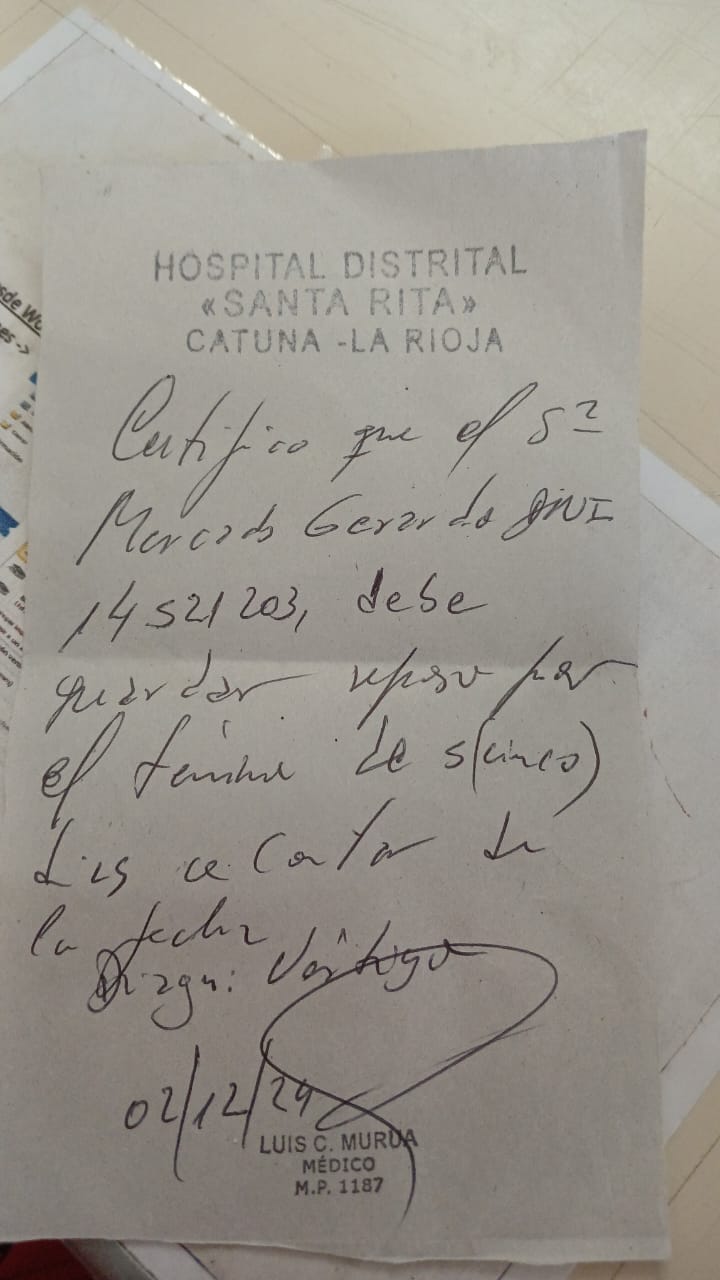 HOSPITAL DISTRITAL
«SANTA RITA»
CATUNA -LA RIOJA
Certifico que el Sr
Mercado Gerardo DNI
14521203, debe
guardar reposo por
el término de 5(cinco)
dias a contar de
la fecha
Diagn: Vértigo
02/12/24
LUIS C. MURUA
MÉDICO
M.P. 1187
sde Wo
es ->